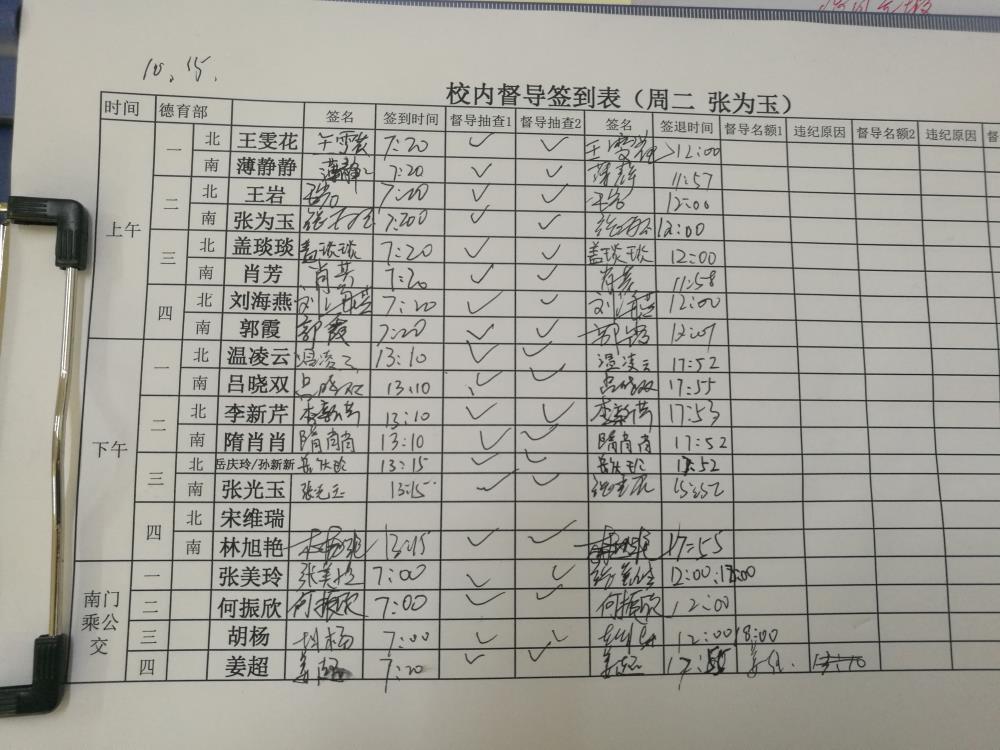 10.15.
校内督导签到表（周二 张为玉）
时间 德育部 签名 签到时间 督导抽查1 督导抽查2 签名 签退时间 督导名额1 违纪原因 督导名额2 违纪原因 督
上午 一 北 王雯花 王雯花 7:20 ✓ ✓ 王雯花 12:00
南 薄静静 薄静静 7:20 ✓ ✓ 薄静静 11:57
二 北 王岩 王岩 7:20 ✓ ✓ 王岩 12:00
南 张为玉 张为玉 7:200 ✓ ✓ 张为玉 12:00
三 北 盖琰琰 盖琰琰 7:20 ✓ ✓ 盖琰琰 12:00
南 肖芳 肖芳 7:20 ✓ ✓ 肖芳 11:58
四 北 刘海燕 刘海燕 7:20 ✓ ✓ 刘海燕 12:00
南 郭霞 郭霞 7:20 ✓ ✓ 郭霞 12:01
下午 一 北 温凌云 温凌云 13:10 ✓ ✓ 温凌云 17:52
南 吕晓双 吕晓双 13:10 ✓ ✓ 吕晓双 17:55
二 北 李新芹 李新芹 13:10 ✓ ✓ 李新芹 17:53
南 隋肖肖 隋肖肖 13:10 ✓ ✓ 隋肖肖 17:52
三 北 岳庆玲/孙新新 岳庆玲 13:15 ✓ ✓ 岳庆玲 17:52
南 张光玉 张光玉 13:15 ✓ ✓ 张光玉
四 北 宋维瑞
南 林旭艳 林旭艳 13:15 ✓ ✓ 林旭艳 17:55
南门乘公交 一 张美玲 张美玲 7:00 ✓ ✓ 张美玲 12:00
二 何振欣 何振欣 7:00 ✓ ✓ 何振欣 12:00
三 胡杨 胡杨 7:00 ✓ ✓ 胡杨 12:00 18:00
四 姜超 姜超 7:20 ✓ ✓ 姜超